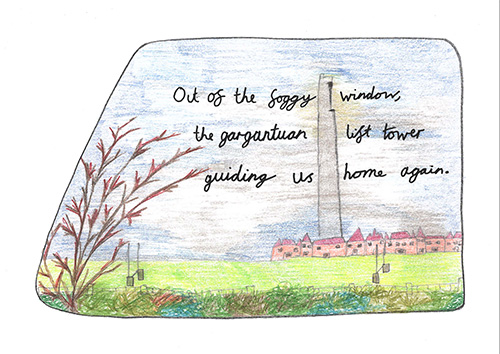 Out of the foggy window,
the gargantuan lift tower
guiding us home again.